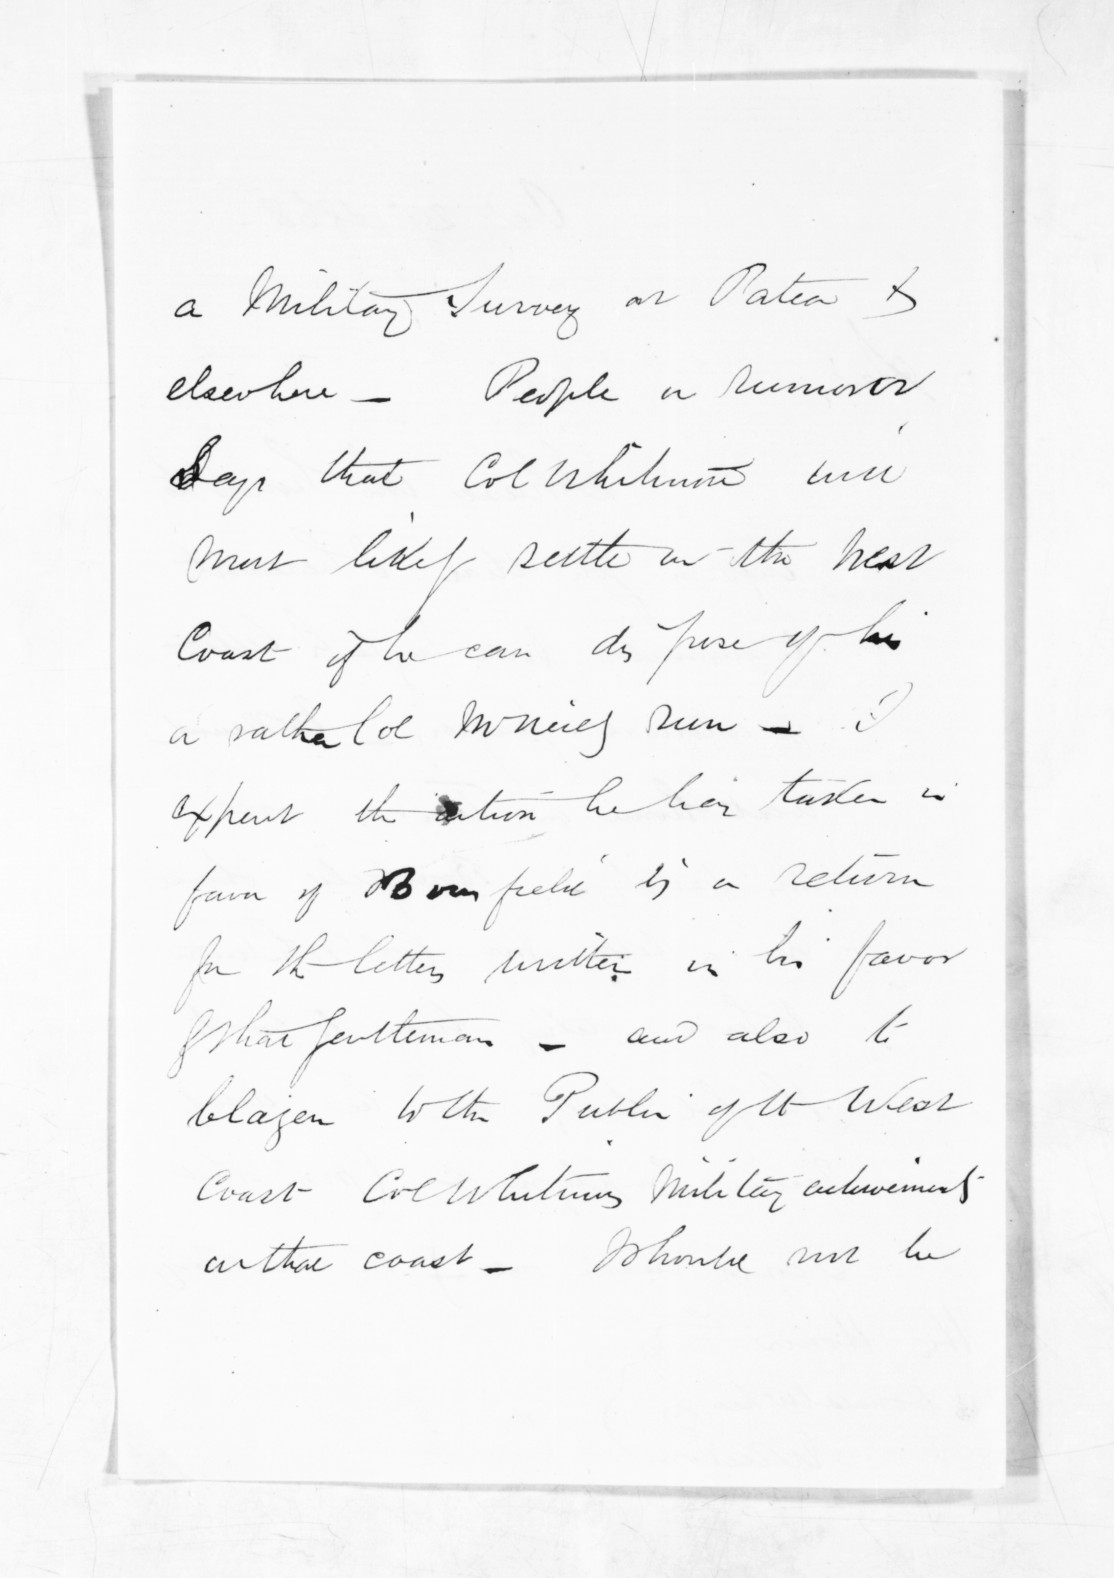 a Military Survey at Patea &
elsewhere — People or rumour
Says that Col Whitmore will
most likely settle on the West
Coast if he can dispose of his
or rather Col McNeils run — I
expect the action he has taken in
favor of Bousfield is a return
for the letters written in his favor
by that gentleman — and also to
blazen to the Public of the West
Coast Col Whitmores Military achievements
on that coast — I should not be